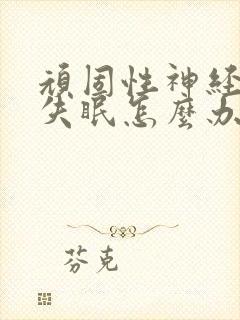 頑固性神経
失眠怎麼办
芬克